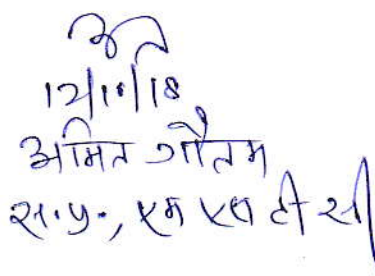 12/10/18
अमित गौतम
स.प्र., एम एस टी सी